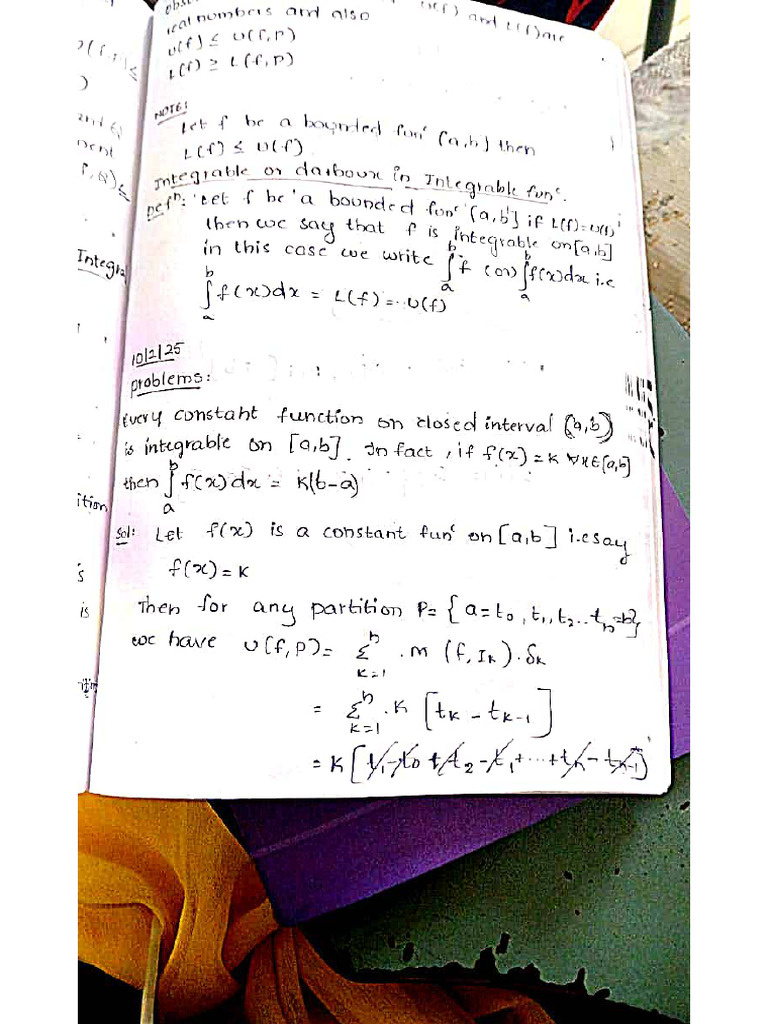 real numbers and also U(f) and L(f) are
U(f) ≤ U(f,P)
L(f) ≥ L(f,P)
NOTE:
Let f be a bounded funᶜ [a,b] then
L(f) ≤ U(f)
Integrable or darboux in Integrable funᶜ.
Defⁿ: Let f be a bounded funᶜ [a,b] if L(f)=U(f)
then we say that f is integrable on [a,b]
in this case we write ∫ₐᵇ f (or) ∫ₐᵇ f(x)dx i.e
∫ₐᵇ f(x)dx = L(f) = U(f)
10/2/25
problems:
Every constant function on closed interval [a,b]
is integrable on [a,b]. In fact, if f(x) = K ∀ x∈[a,b]
then ∫ₐᵇ f(x)dx = K(b-a)
Sol: Let f(x) is a constant funᶜ on [a,b] i.e say
f(x) = K
Then for any partition P = {a=t₀, t₁, t₂...tₙ=b}
we have U(f,P) = Σⁿₖ₌₁ . M (f, Iₖ) . δₖ
= Σⁿₖ₌₁ . K [tₖ - tₖ₋₁]
= K [t₁ - t₀ + t₂ - t₁ + ... + tₙ - tₙ₋₁]
Integral